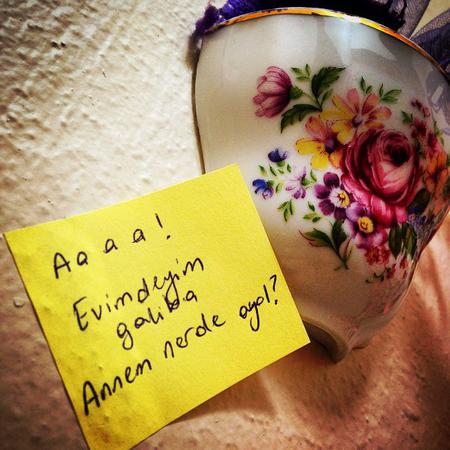 Aaaa!
Evimdeyim
galiba
Annem nerde ayol?